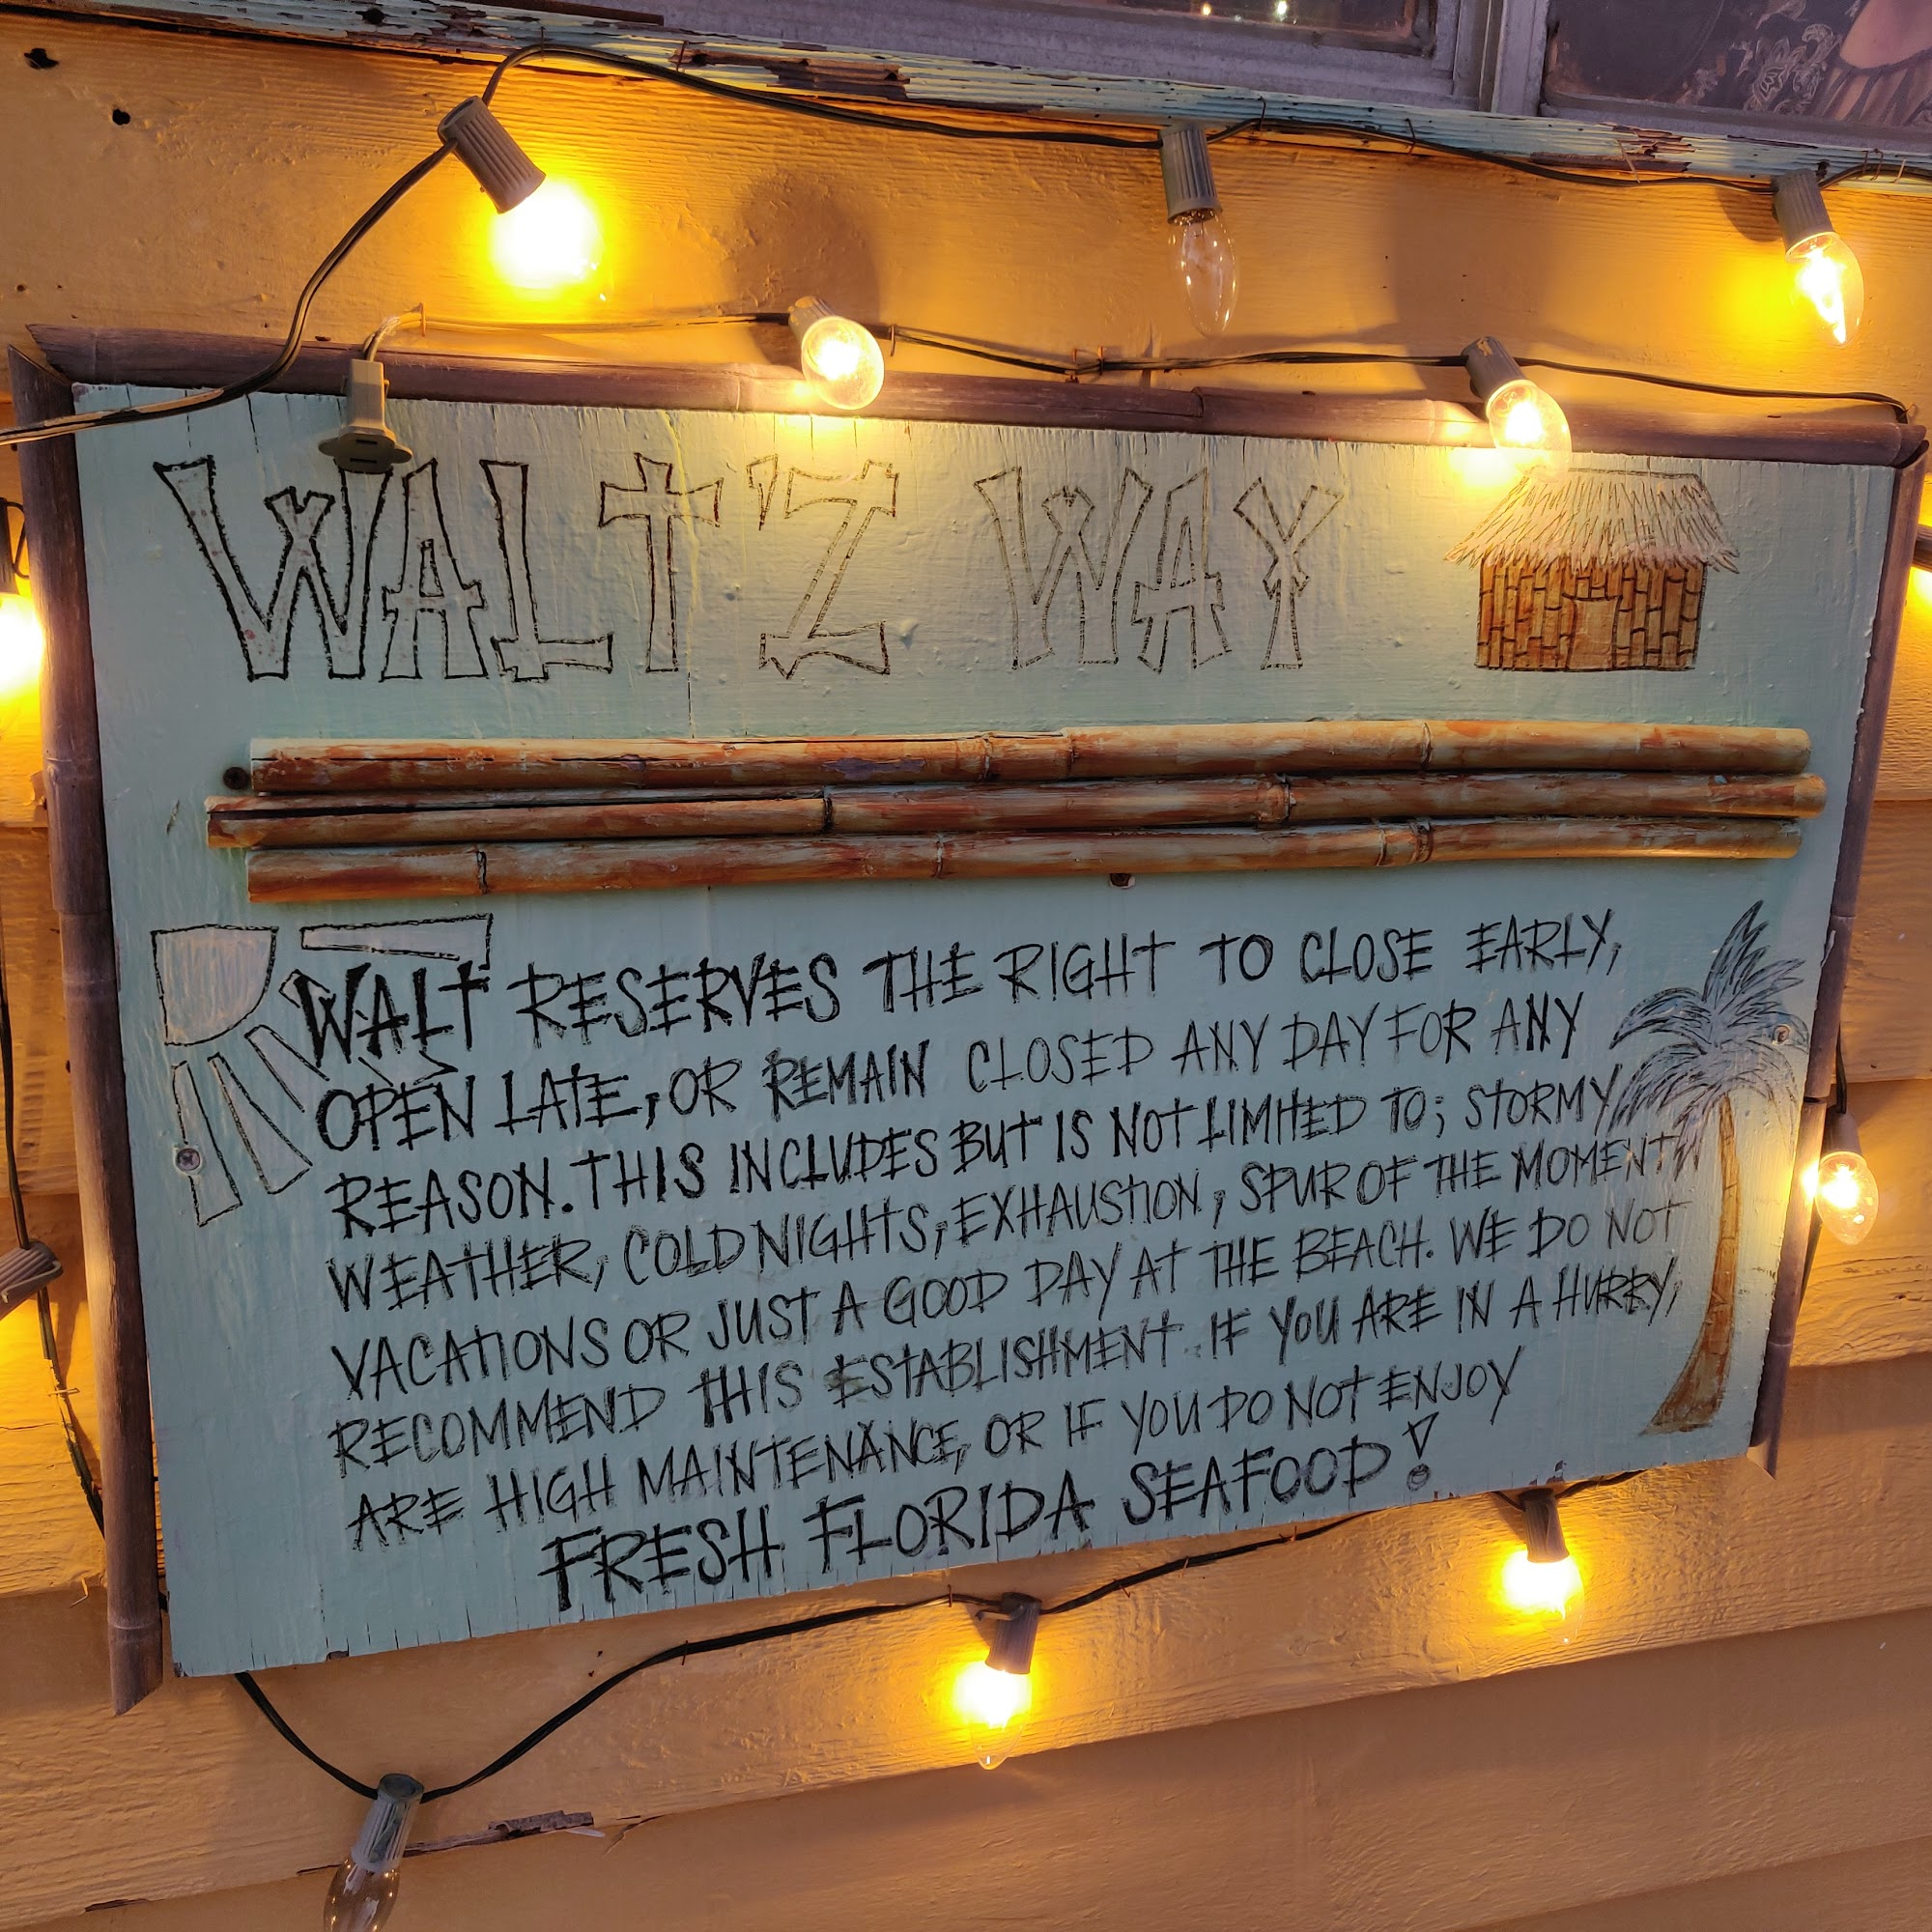 WALT'Z WAY
WALT RESERVES THE RIGHT TO CLOSE EARLY,
OPEN LATE, OR REMAIN CLOSED ANY DAY FOR ANY
REASON. THIS INCLUDES BUT IS NOT LIMITED TO; STORMY
WEATHER, COLD NIGHTS, EXHAUSTION, SPUR OF THE MOMENT
VACATIONS OR JUST A GOOD DAY AT THE BEACH. WE DO NOT
RECOMMEND THIS ESTABLISHMENT IF YOU ARE IN A HURRY,
ARE HIGH MAINTENANCE, OR IF YOU DO NOT ENJOY
FRESH FLORIDA SEAFOOD!